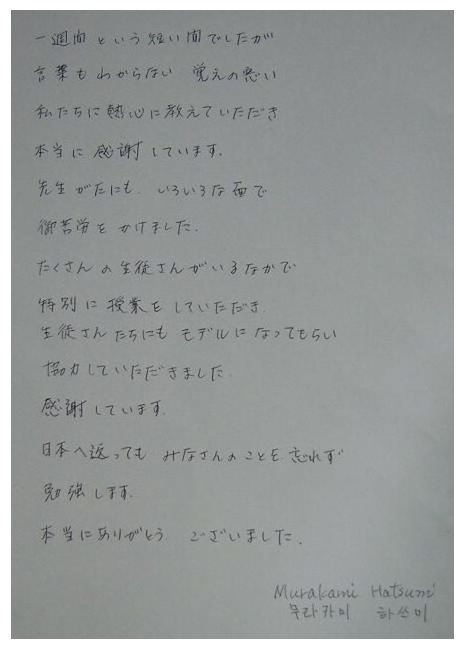 一週間という短い間でしたが
言葉もわからない 覚えの悪い
私たちに熱心に教えていただき
本当に感謝しています.
先生がたにも. いろいろな面で
御苦労をかけました.
たくさんの生徒さんがいるなかで
特別に授業をしていただき.
生徒さんたちにもモデルになってもらい
協力していただきました.
感謝しています.
日本へ返ってもみなさんのことを忘れず
勉強します.
本当にありがとう ございました.
Murakami Hatsumi
무라카미 하쓰미